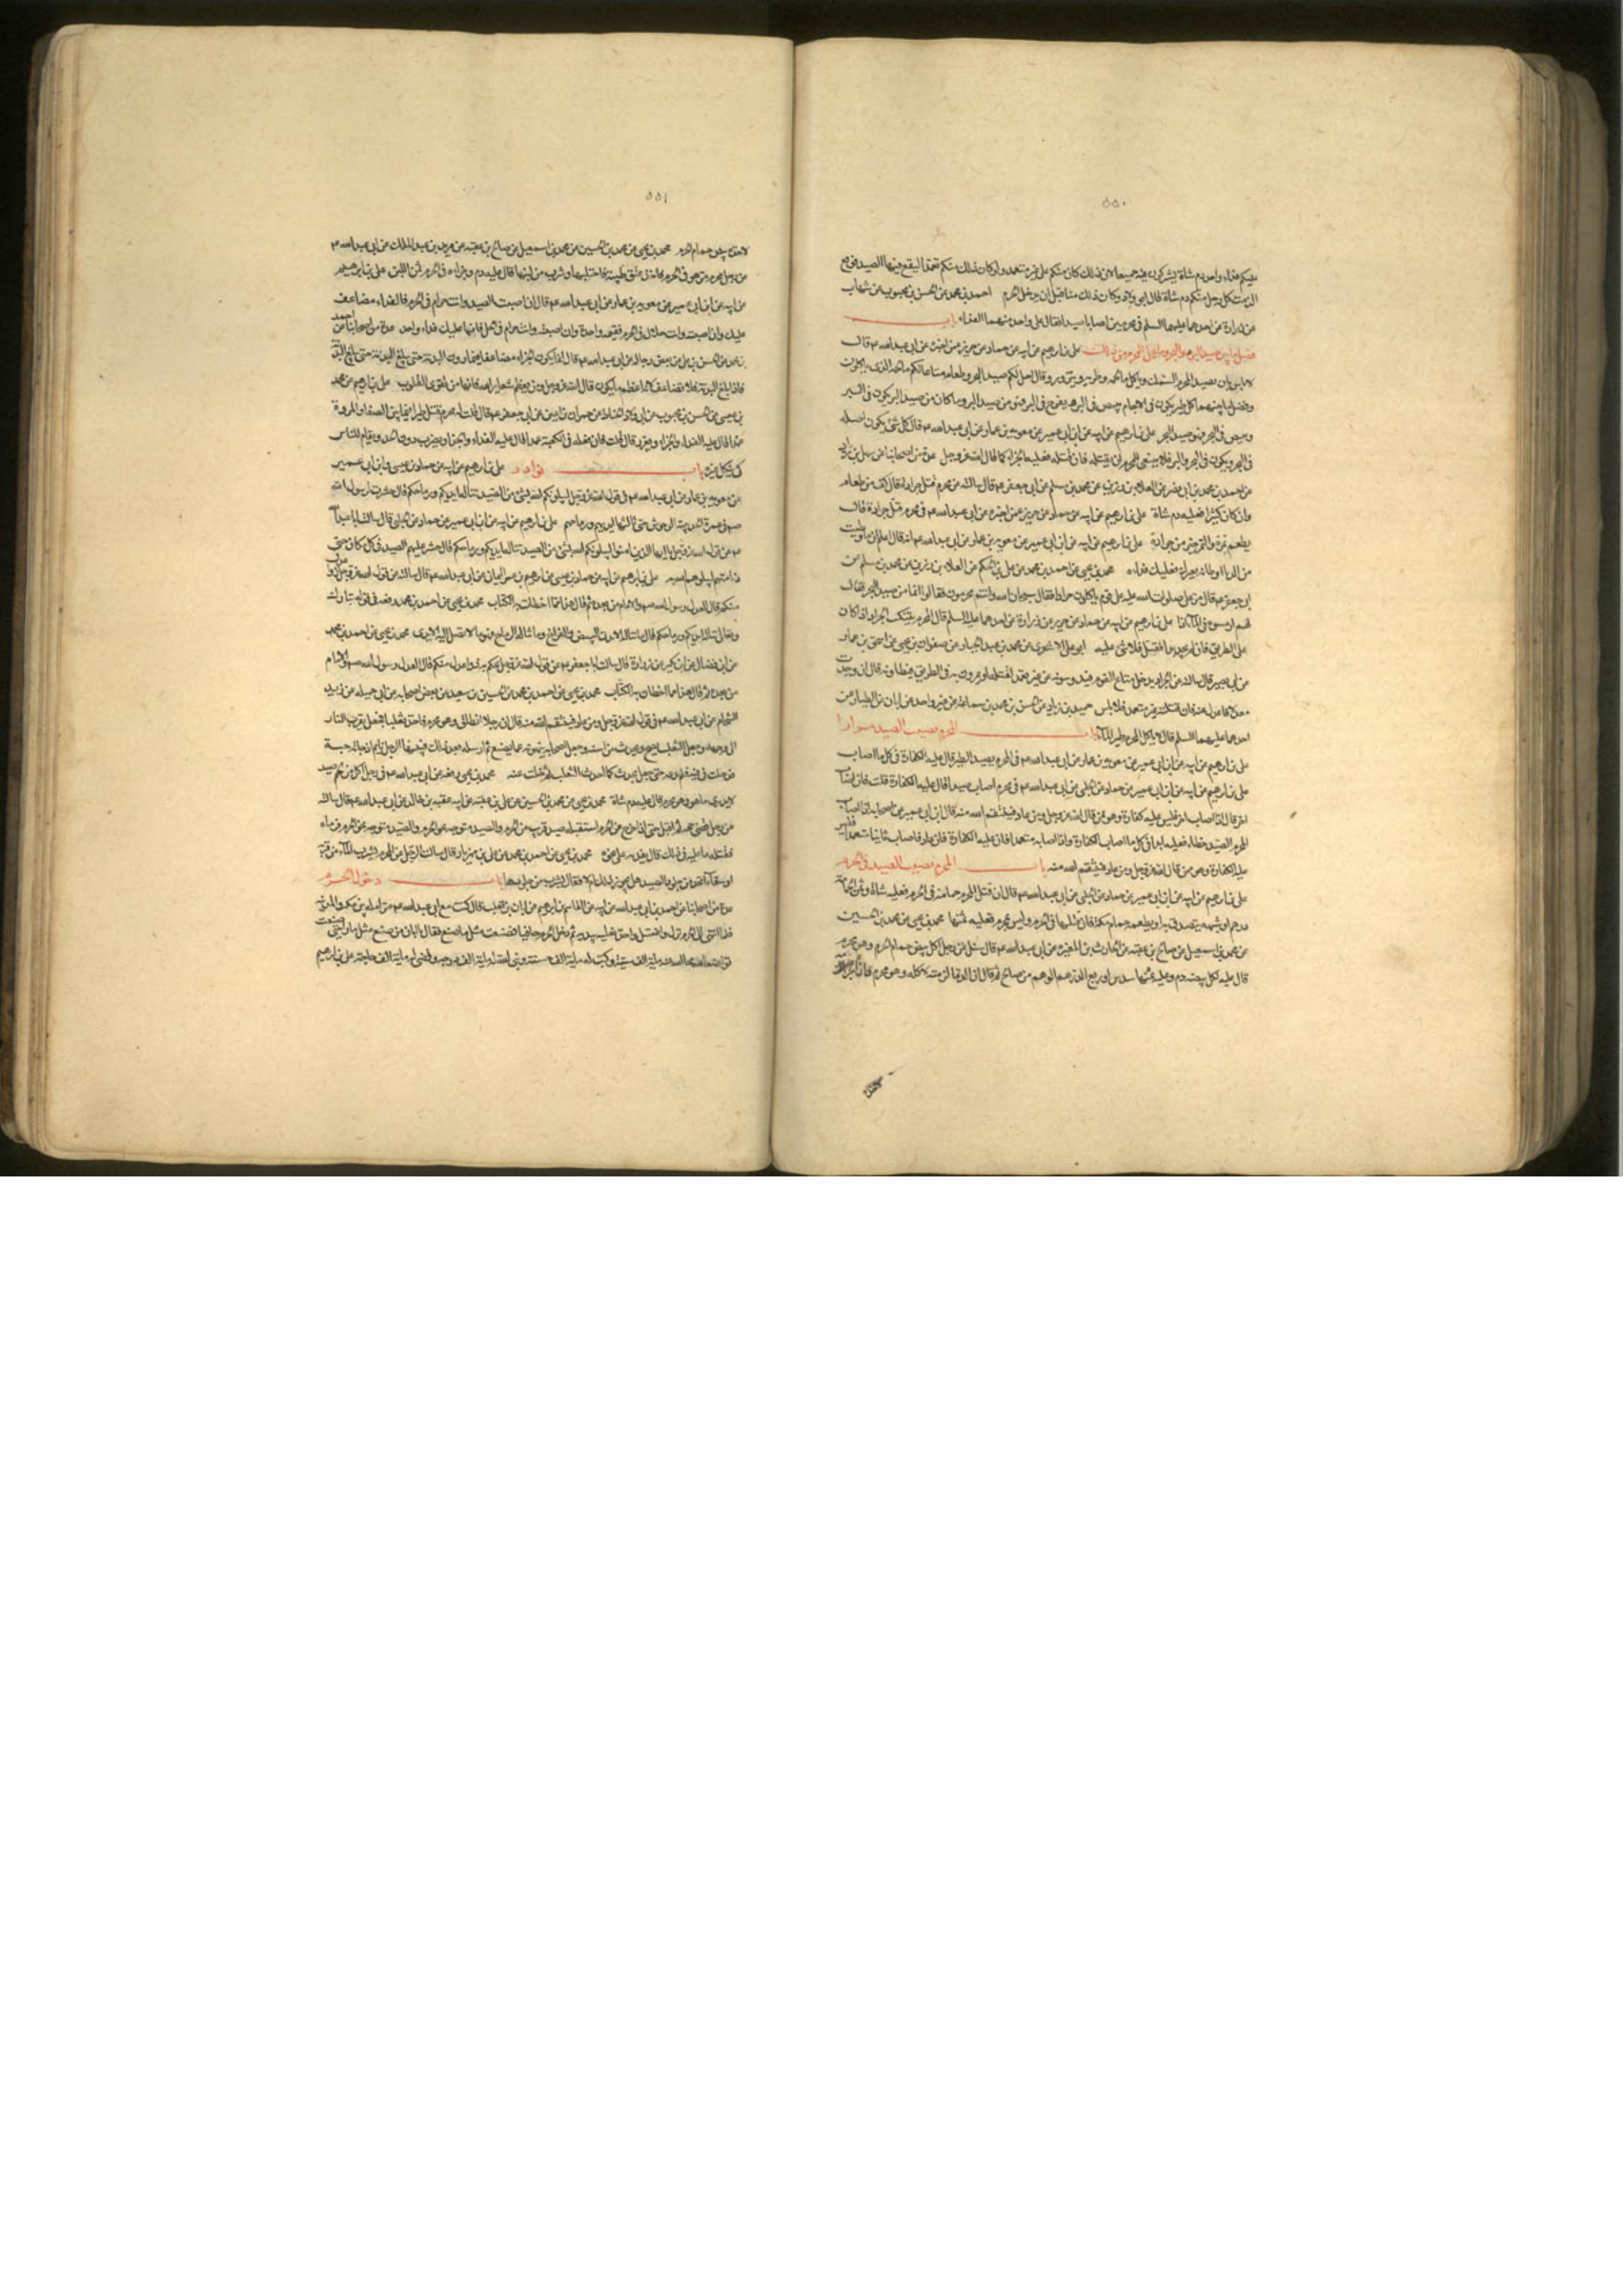 ٥٥٠
عليكم فداء واحد دم شاة تشتركون فيه جميعا لان ذلك كان منكم على غير تعمد ولو كان ذلك منكم تعمدا ليقع فيها الصيد فوقع
الزمت كل رجل منكم دم شاة قال ابو ولاد وكان ذلك منا قبل ان ندخل الحرم احمد بن محمد عن الحسن بن محبوب عن شهاب
عن زرارة عن احدهما عليهما السلم في محرمين اصابا صيدا فقال على كل واحد منهما الفداء باب
فصل ما بين صيد البر والبحر وما يحل للمحرم من ذلك علي بن ابرهيم عن ابيه عن حماد عن حريز عمن اخبره عن ابي عبدالله ع قال
لا باس بان يصيد المحرم السمك وياكل مالحه وطريه ويتزود وقال احل لكم صيد البحر وطعامه متاعا لكم مالحه الذي ياكلون
وفصل ما بينهما كل طير يكون في الاجام يبيض في البر ويفرخ في البر فهو من صيد البر وما كان من صيد البر يكون في البر
ويبيض في البحر فهو صيد البحر علي بن ابرهيم عن ابيه عن ابن ابي عمير عن معوية بن عمار عن ابي عبدالله ع قال كل شئ يكون اصله
في البحر ويكون في البر والبحر فلا ينبغي للمحرم ان يقتله فان قتله فعليه الجزاء كما قال الله عز وجل عدة من اصحابنا عن سهل بن زياد
عن احمد بن محمد بن ابي نصر عن العلاء بن رزين عن محمد بن مسلم عن ابي جعفر ع قال سالته عن محرم قتل جرادة قال كف من طعام
وان كان كثيرا فعليه دم شاة علي بن ابرهيم عن ابيه عن حماد عن حريز عمن اخبره عن ابي عبدالله ع في محرم قتل جرادة قال
يطعم تمرة والتمرة خير من جرادة علي بن ابرهيم عن ابيه عن ابن ابي عمير عن معوية بن عمار عن ابي عبدالله ع انه قال اعلم ان ما وطيت
من الدبا او وطاته بعيرك فعليك فداءه محمد بن يحيى عن احمد بن محمد عن علي بن الحكم عن العلاء بن رزين عن محمد بن مسلم عن
ابي جعفر ع قال مر علي صلوات الله عليه على قوم ياكلون جرادا فقال سبحان الله وانتم محرمون فقالوا انما هو من صيد البحر فقال
لهم ارمسوه في الماء اذا علي بن ابرهيم عن ابيه عن حماد عن حريز عن زرارة عن احدهما عليه السلم قال المحرم يتنكب الجراد اذا كان
على الطريق فان لم يجد بدا فقتل فلا شئ عليه ابو علي الاشعري عن محمد بن عبد الجبار عن صفوان بن يحيى عن اسحق بن عمار
عن ابي بصير قال سالته عن الجراد يدخل متاع القوم فيدوسونه من غير تعمد لقتله او يمرون به في الطريق فيطاونه قال ان وجدت
معدلا فاعدل عنه فان قتلته غير متعمد فلا باس حميد بن زياد عن الحسن بن محمد بن سماعة عن غير واحد عن ابان عن الطيار عن
احدهما عليهما السلم قال لا ياكل المحرم طير الماء باب المحرم يصيب الصيد مرارا
علي بن ابرهيم عن ابيه عن ابن ابي عمير عن معوية بن عمار عن ابي عبدالله ع في المحرم يصيد الطير قال عليه الكفارة في كل ما اصاب
علي بن ابرهيم عن ابيه عن ابن ابي عمير عن حماد عن الحلبي عن ابي عبدالله ع في محرم اصاب صيدا قال عليه الكفارة قلت فان اصاب
اخر قال اذا اصاب اخر فليس عليه كفارة وهو ممن قال الله عز وجل ومن عاد فينتقم الله منه قال ابن ابي عمير عن اصحابه اذا اصاب
المحرم الصيد خطاء فعليه ابدا في كل ما اصاب الكفارة واذا اصابه متعمدا فان عليه الكفارة فان عاد فاصاب ثانيا متعمدا فليس
عليه الكفارة وهو ممن قال الله عز وجل ومن عاد فينتقم الله منه باب المحرم يصيب الصيد في الحرم
علي بن ابرهيم عن ابيه عن ابن ابي عمير عن حماد عن الحلبي عن ابي عبدالله ع قال ان قتل المحرم حمامة في الحرم فعليه شاة وثمن الحمامة
درهم او شبهه يتصدق به او يطعمه حمام مكة فان قتلها في الحرم وليس بمحرم فعليه ثمنها محمد بن يحيى عن محمد بن الحسين
عن محمد بن اسمعيل عن صالح بن عقبة عن الحارث بن المغيرة عن ابي عبدالله ع قال سئل عن رجل اكل بيض حمام الحرم وهو محرم
قال عليه لكل بيضة دم وعليه ثمنها سدس او ربع الدرهم الوهم من صالح ثم قال ان الدماء لزمته لاكله وهو محرم وان الجزاء
٥٥١
لاخذه بيض حمام الحرم محمد بن يحيى عن محمد بن الحسين عن محمد بن اسمعيل عن صالح بن عقبة عن يزيد بن عبد الملك عن ابي عبدالله ع
عن رجل محرم مر وهو في الحرم فاخذ عنق ظبية فاحتلبها وشرب من لبنها قال عليه دم وجزاءه في الحرم ثمن اللبن علي بن ابرهيم
عن ابيه عن ابن ابي عمير عن معوية بن عمار عن ابي عبدالله ع قال ان اصبت الصيد وانت حرام في الحرم فالفداء مضاعف
عليك وان اصبته وانت حلال في الحرم فقيمة واحدة وان اصبته وانت حرام في الحل فانما عليك فداء واحد عدة من اصحابنا عن احمد
بن محمد عن الحسن بن علي عن بعض رجاله عن ابي عبدالله ع قال انما يكون الجزاء مضاعفا فيما دون البدنة حتى يبلغ البدنة
فاذا بلغ البدنة فلا تضاعف لانه اعظم ما يكون قال الله عز وجل ومن يعظم شعاير الله فانها من تقوى القلوب علي بن ابرهيم عن محمد
بن عيسى عن الحسن بن محبوب عن ابي ولاد الحناط عن حمران بن اعين عن ابي جعفر ع قال قلت له محرم قتل طيرا فيما بين الصفا والمروة
عمدا قال عليه الفداء والجزاء ويعزر قال قلت فان فعله في الكعبة عمدا قال عليه الفداء والجزاء ويضرب دون الحد ويقام للناس
كي ينكل غيره باب نوادر علي بن ابرهيم عن ابيه عن حماد بن عيسى وابن ابي عمير
عن معوية بن عمار عن ابي عبدالله ع في قول الله عز وجل ليبلونكم الله بشئ من الصيد تناله ايديكم ورماحكم قال حشرت لرسول الله
ص في عمرة الحديبية الوحوش حتى نالتها ايديهم ورماحهم علي بن ابرهيم عن ابيه عن ابن ابي عمير عن حماد عن الحلبي قال سالت ابا عبدالله
ع عن قول الله عز وجل يا ايها الذين امنوا ليبلونكم الله بشئ من الصيد تناله ايديكم ورماحكم قال حشر عليهم الصيد في كل مكان حتى
دنا منهم ليبلوهم الله به علي بن ابرهيم عن ابيه عن حماد بن عيسى عن ابرهيم بن عمر اليماني عن ابي عبدالله ع قال سالته عن قول الله عز وجل ذوا عدل
منكم قال العدل رسول الله ص والامام من بعده ثم قال هذا مما اخطات به الكتاب محمد بن يحيى عن احمد بن محمد رفعه في قوله تبارك
وتعالى تناله ايديكم ورماحكم قال ما تناله الايدي البيض والفراخ وما تناله الرماح فهو ما لا تصل اليه الايدي محمد بن يحيى عن احمد بن محمد
عن ابن فضال عن ابن بكير عن زرارة قال سالت ابا جعفر ع عن قول الله عز وجل يحكم به ذوا عدل منكم قال العدل رسول الله ص والامام
من بعده ثم قال هذا مما اخطات به الكتاب محمد بن يحيى عن احمد بن محمد عن الحسين بن سعيد عن بعض اصحابه عن ابي جميلة عن زيد
الشحام عن ابي عبدالله ع في قول الله عز وجل ومن عاد فينتقم الله منه قال ان رجلا انطلق وهو محرم فاخذ ثعلبا فجعل يقرب النار
الى وجهه وجعل الثعلب يصيح ويحدث من استه وجعل اصحابه ينهونه عما يصنع ثم ارسله بعد ذلك فبينما الرجل نايم اذ جاءته حية
فدخلت في فيه فلم تدعه حتى جعل يحدث كما احدث الثعلب ثم خلت عنه محمد بن يحيى رفعه عن ابي عبدالله ع في رجل اكل من لحم صيد
لا يدري ما هو وهو محرم قال عليه دم شاة محمد بن يحيى عن محمد بن الحسين عن علي بن عقبة عن ابيه عقبة بن خالد عن ابي عبدالله ع قال سالته
عن رجل قضى حجه ثم اقبل حتى اذا خرج من الحرم استقبله صيد قريب من الحرم والصيد متوجه نحو الحرم فرماه
فقتله ما عليه في ذلك قال يفديه على نحوه محمد بن يحيى عن احمد بن محمد عن علي بن مهزيار قال سالت الرجل عن المحرم يشرب الماء من قربة
او سقاء اتخذ من جلود الصيد هل يجوز ذلك ام لا فقال يشرب من جلودها باب دخول الحرم
عدة من اصحابنا عن احمد بن ابي عبدالله عن ابيه عن القاسم بن ابرهيم عن ابان بن تغلب قال كنت مع ابي عبدالله ع مزامله بين مكة والمدينة
فلما انتهى الى الحرم نزل واغتسل واخذ نعليه بيديه ثم دخل الحرم حافيا فصنعت مثل ما صنع فقال يا ابان من صنع مثل ما رايتني صنعت
تواضعا لله محا الله عنه ماية الف سيئة وكتب له ماية الف حسنة وبنى له ماية الف درجة وقضى له ماية الف حاجة علي بن ابرهيم